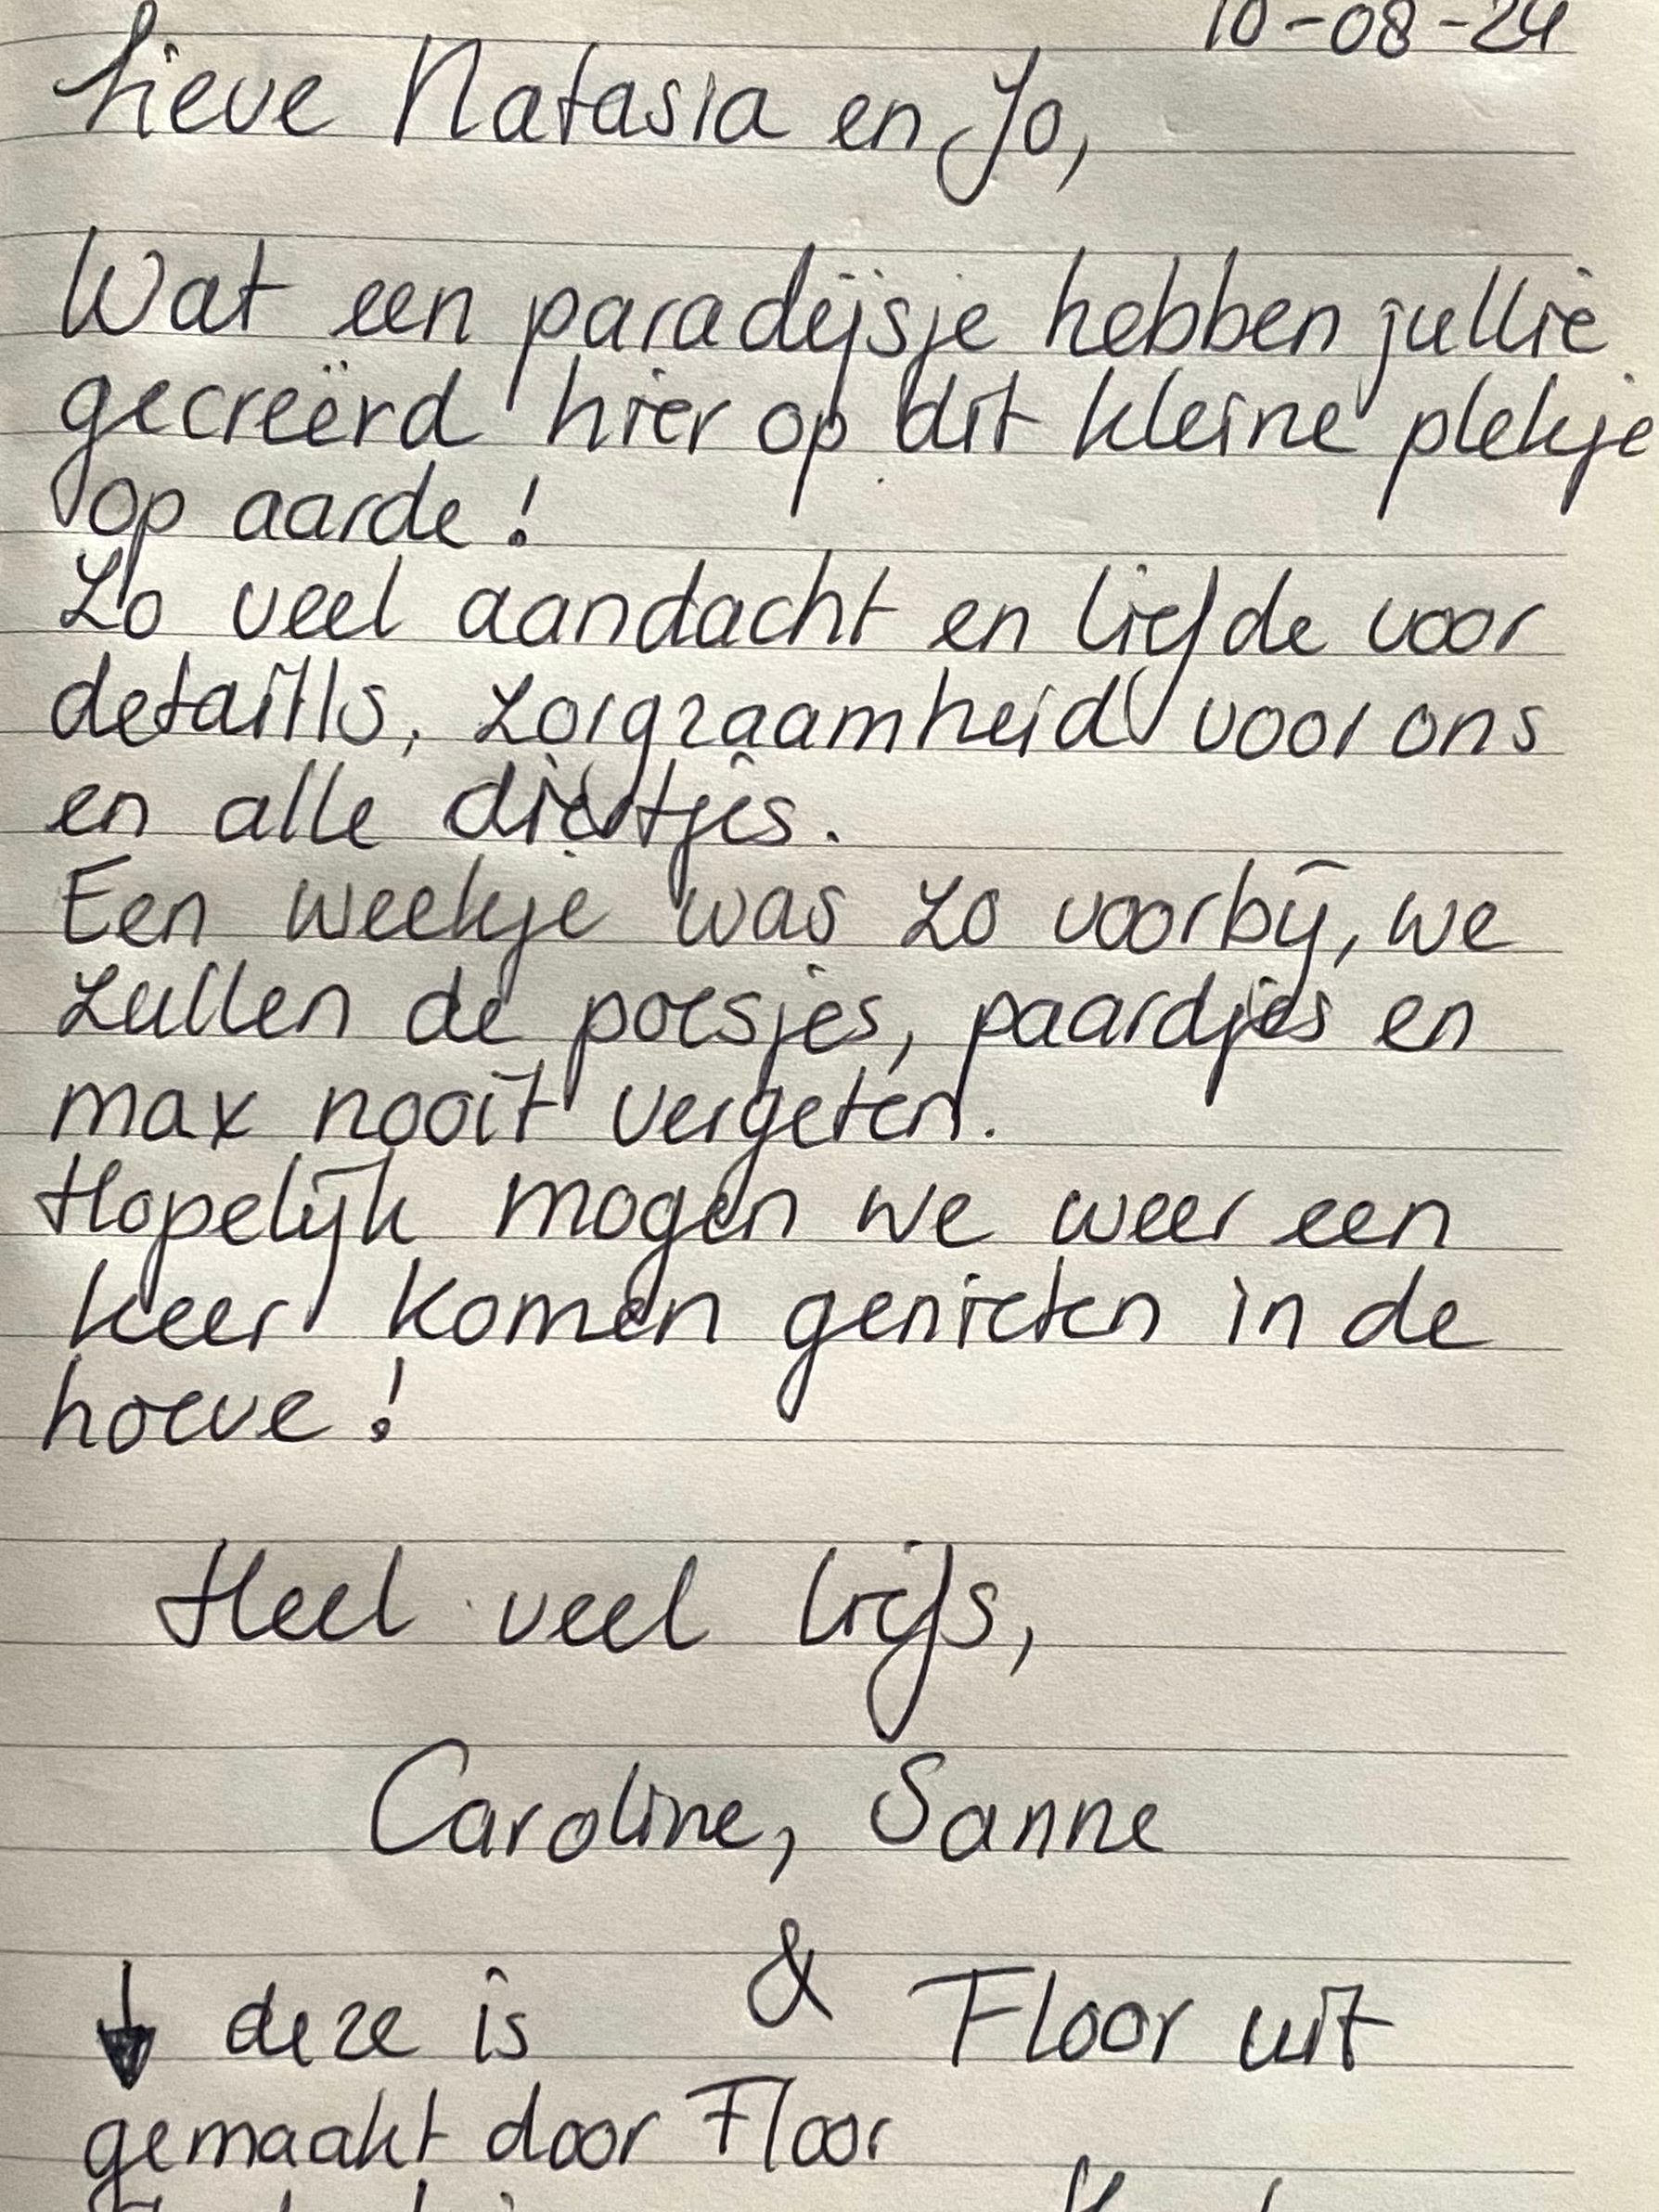 10-08-24
Lieve Natasia en Jo,
Wat een paradijsje hebben jullie
gecreërd hier op dit kleine plekje
op aarde!
Zo veel aandacht en liefde voor
detaills, zorgzaamheid voor ons
en alle diertjes.
Een weekje was zo voorbij, we
zullen de poesjes, paardjes en
max nooit vergeten.
Hopelijk mogen we weer een
keer komen genieten in de
hoeve!
Heel veel liefs,
Caroline, Sanne
& Floor uit
↓ deze is
gemaakt door Floor